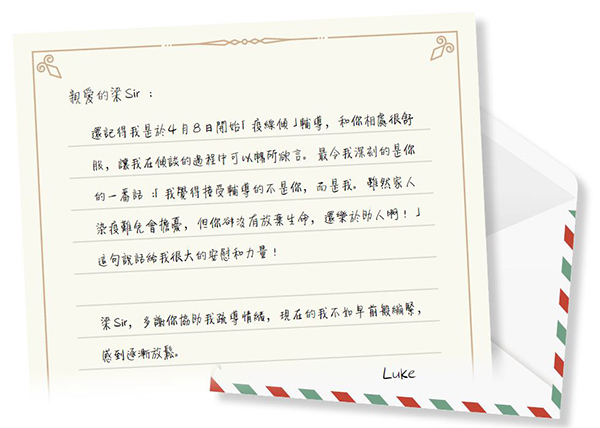 親愛的梁Sir：
還記得我是於4月8日開始「疫線傾」輔導，和你相處很舒
服，讓我在傾談的過程中可以暢所欲言。最令我深刻的是你
的一番話：「我覺得接受輔導的不是你，而是我。雖然家人
染疫難免會擔憂，但你卻沒有放棄生命，還樂於助人啊！」
這句說話給我很大的安慰和力量！
梁Sir，多謝你協助我疏導情緒，現在的我不如早前般繃緊，
感到逐漸放鬆。
Luke